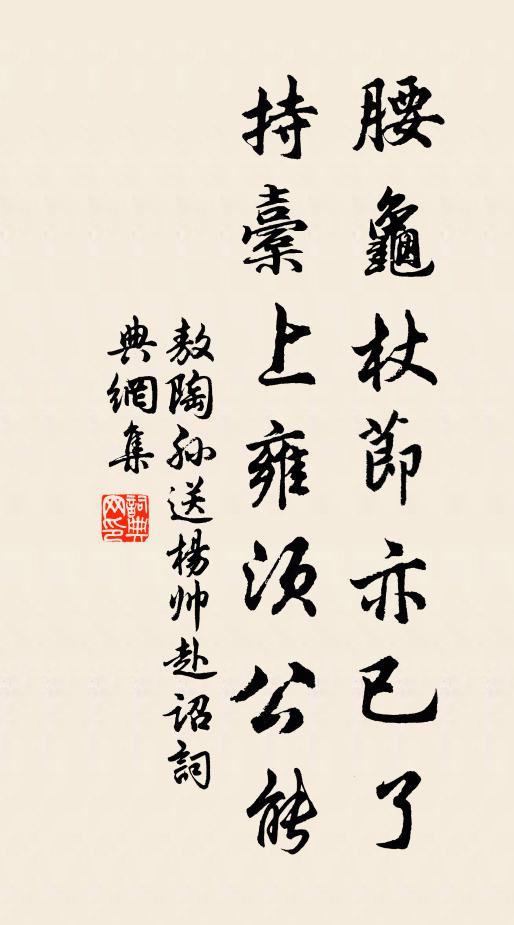 腰龜杖節亦已了
持橐上雍須公能
敖陶孫送楊帥赴詔詞
典網集
詞典网印